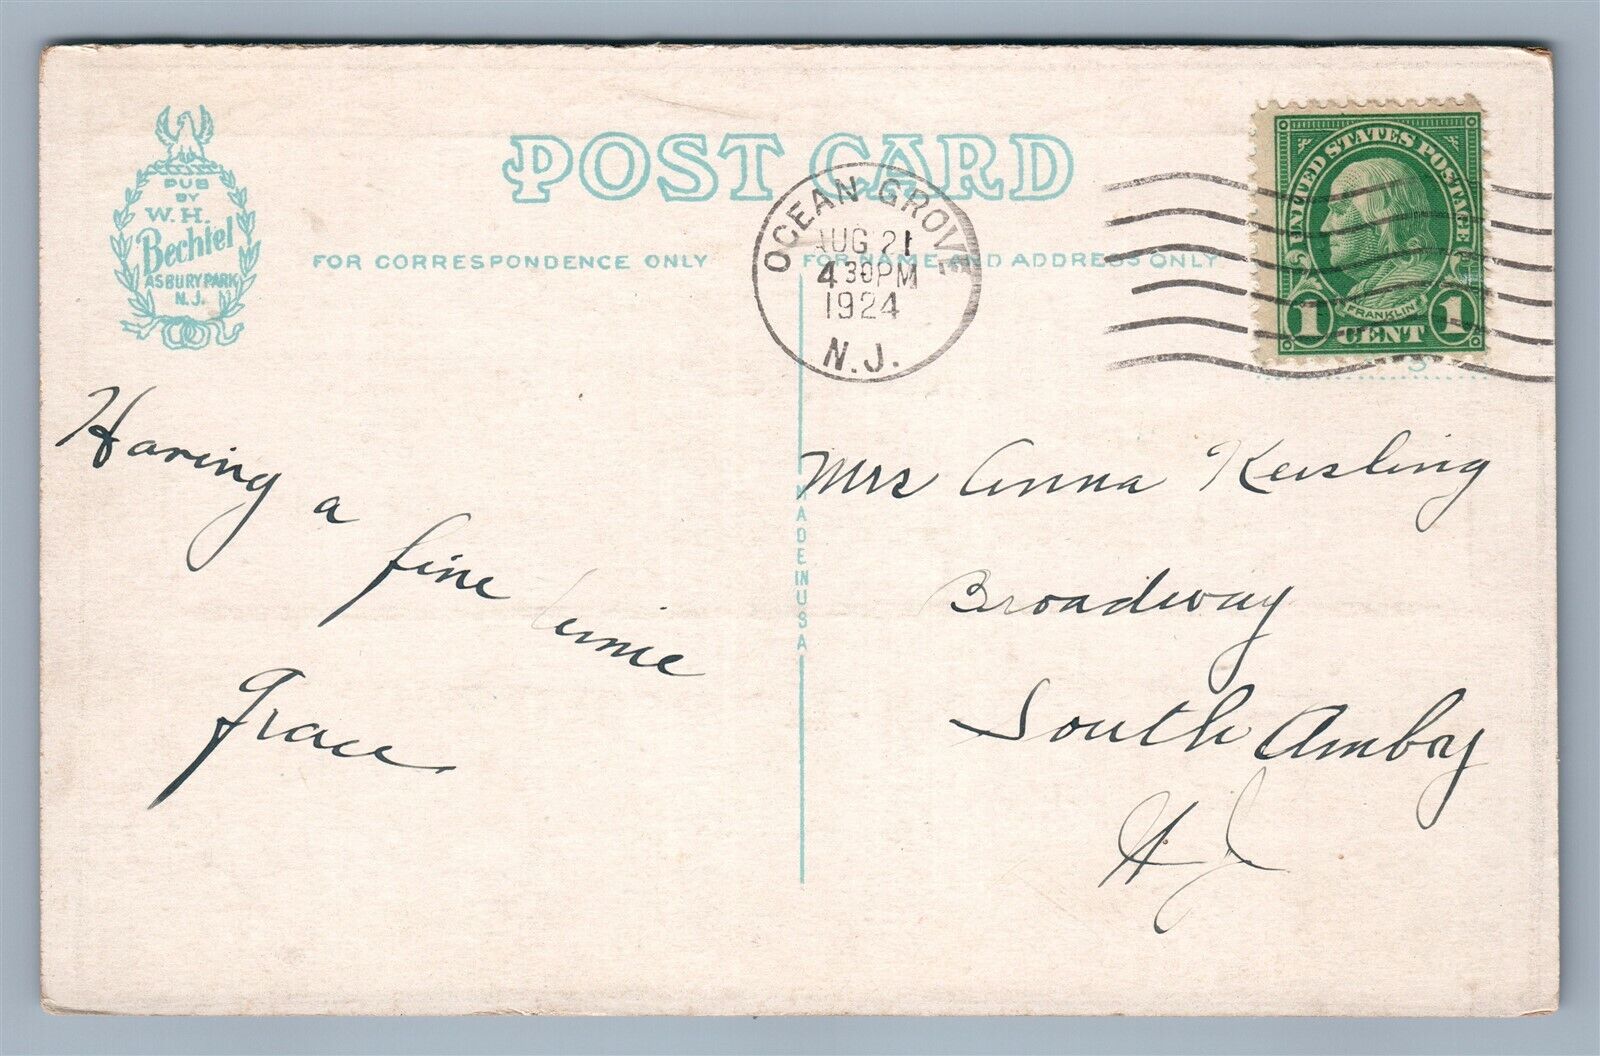 POST CARD
PUB
BY
W. H.
Bechtel
ASBURY PARK
N. J.
FOR CORRESPONDENCE ONLY
FOR NAME AND ADDRESS ONLY
OCEAN GROVE
AUG 21
4 30 PM
1924
N.J.
UNITED STATES POSTAGE
FRANKLIN
1 CENT 1
Having a fine time
Grace
MADE IN USA
Mrs Anna Keisling
Broadway
South Amboy
N J